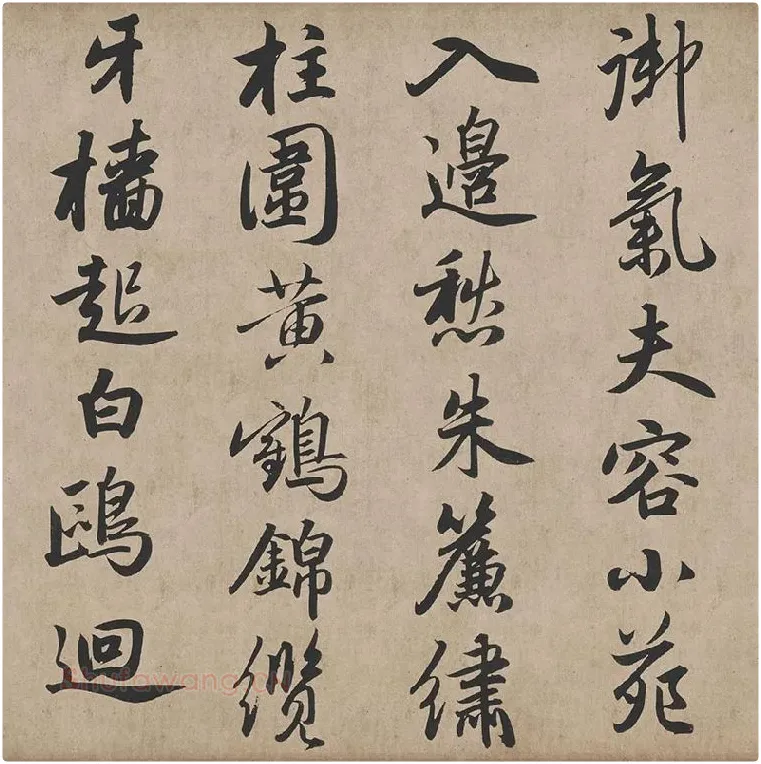 御氣夫容小苑
入邊愁朱簾繡
柱圍黃鶴錦纜
牙檣起白鷗迴
shufawang.cn